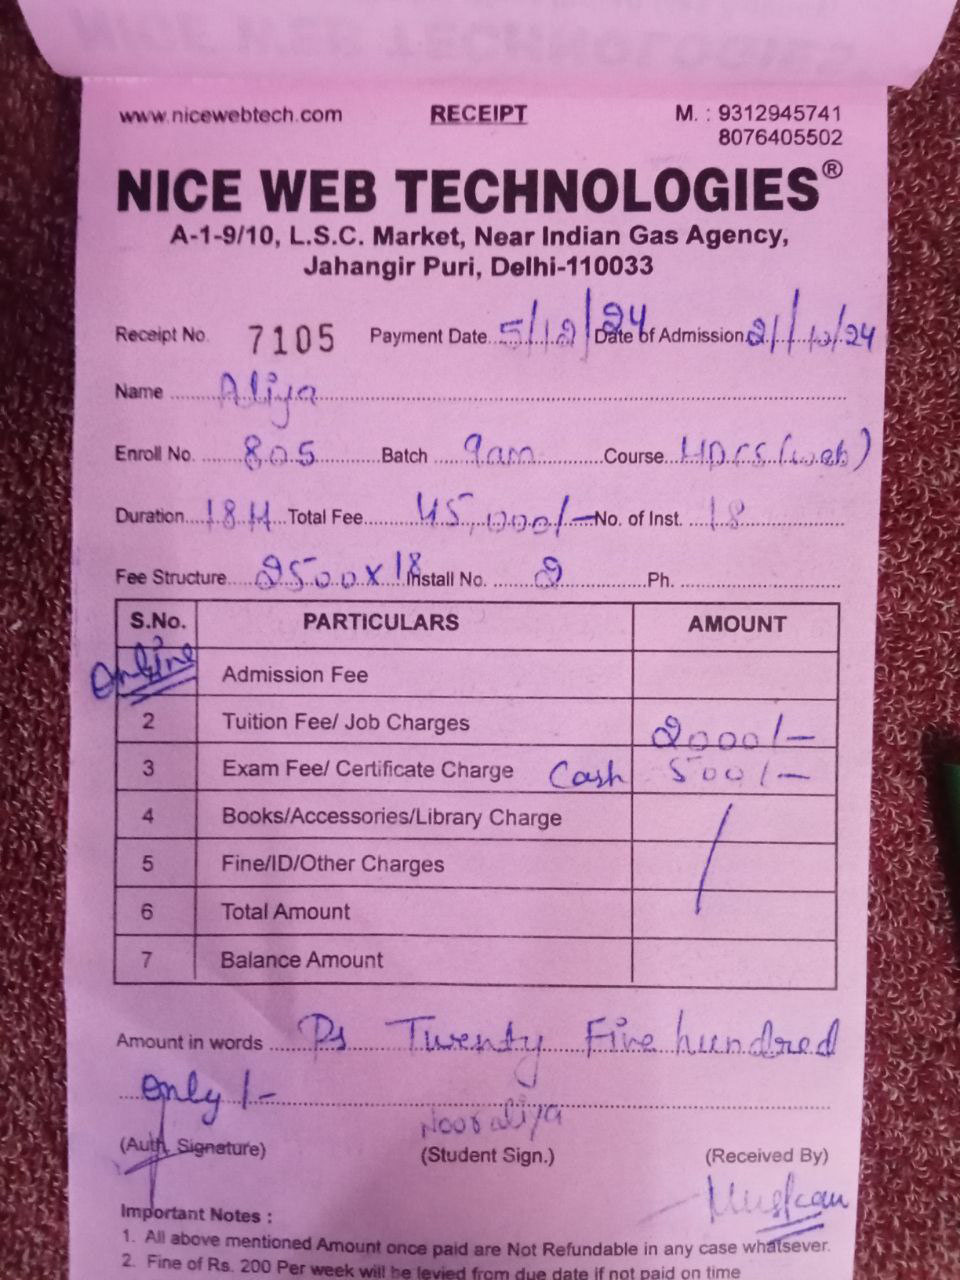 www.nicewebtech.com RECEIPT M. : 9312945741
8076405502
NICE WEB TECHNOLOGIES®
A-1-9/10, L.S.C. Market, Near Indian Gas Agency,
Jahangir Puri, Delhi-110033
Receipt No. 7105 Payment Date 5/12/24 Date of Admission 2/10/24
Name Aliya
Enroll No. 805 Batch 9am Course (web)
Duration 18 M Total Fee 45,000/- No. of Inst. 18
Fee Structure 2500x18 Install No. 2 Ph.
S.No. PARTICULARS AMOUNT
Online Admission Fee
2 Tuition Fee/ Job Charges 2000/-
3 Exam Fee/ Certificate Charge Cash 500/-
4 Books/Accessories/Library Charge
5 Fine/ID/Other Charges
6 Total Amount
7 Balance Amount
Amount in words Rs Twenty Five hundred
only /-
Nooraliya
(Auth. Signature) (Student Sign.) (Received By)
Muskan
Important Notes :
1. All above mentioned Amount once paid are Not Refundable in any case whatsever.
2. Fine of Rs. 200 Per week will be levied from due date if not paid on time